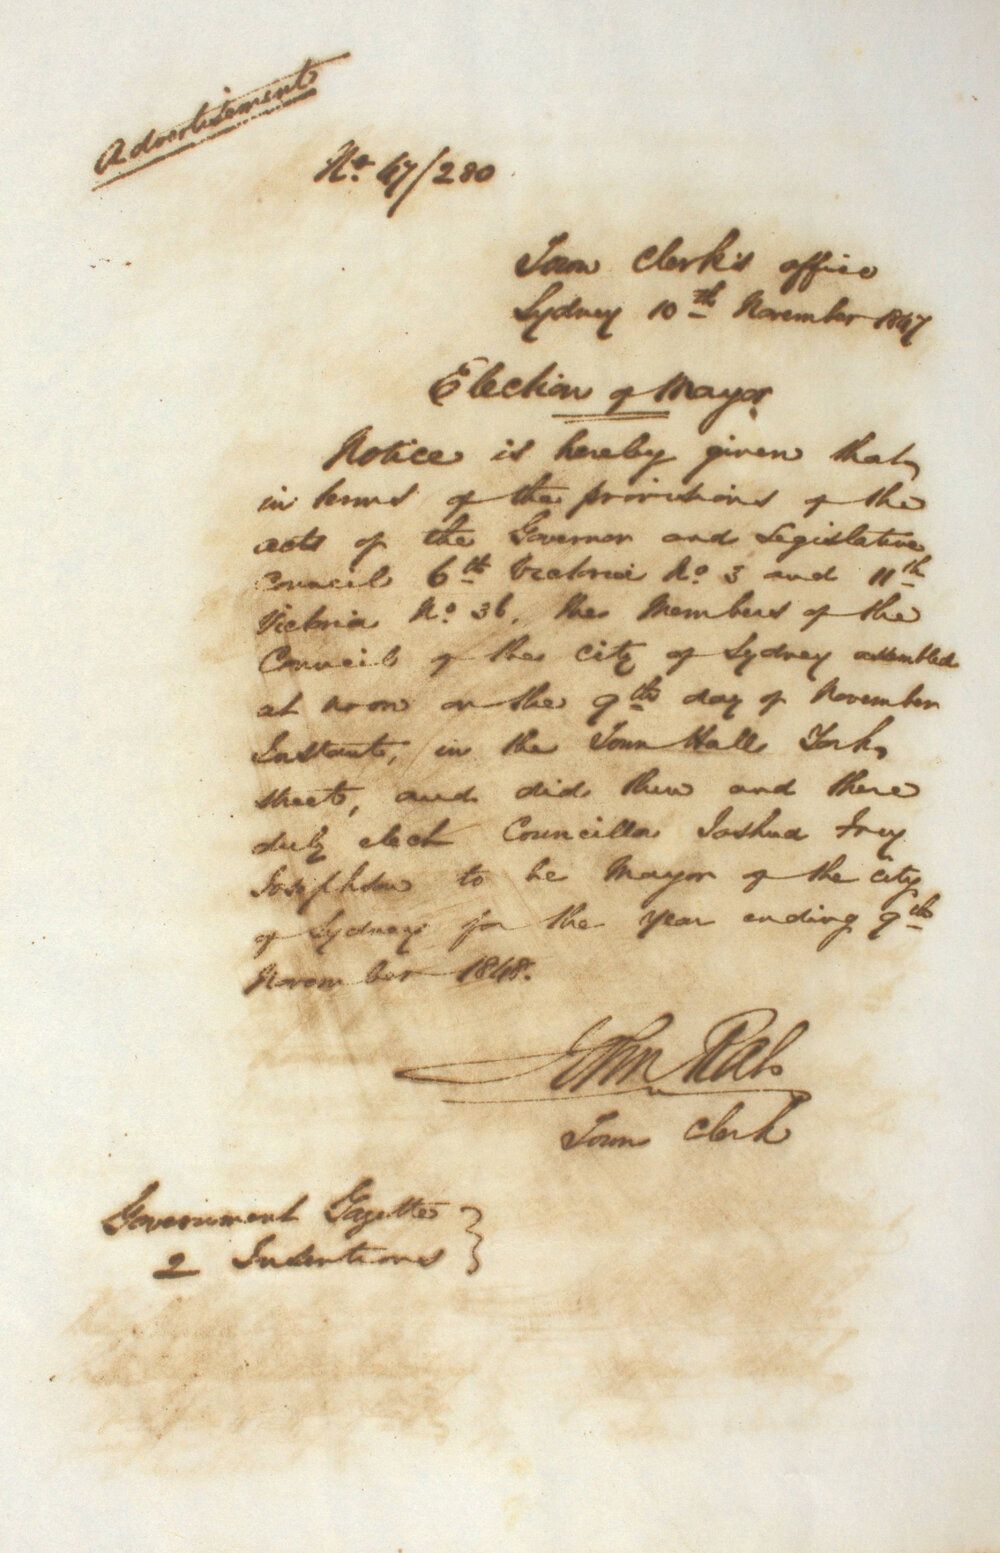 Advertisement
No. 47/280
Town Clerk's office
Sydney 10th November 1847
Election of Mayor
Notice is hereby given that,
in terms of the provisions of the
acts of the Governor and Legislative
Council 6th Victoria No. 3 and 11th
Victoria No. 36, the Members of the
Council of the city of Sydney assembled
at noon on the 9th day of November
Instant, in the Town Hall York
street, and did then and there
duly elect Councillor Joshua Frey
Josephson to be Mayor of the city
of Sydney for the year ending 9th
November 1848.
John Rae
Town Clerk
Government Gazette
2 Insertions